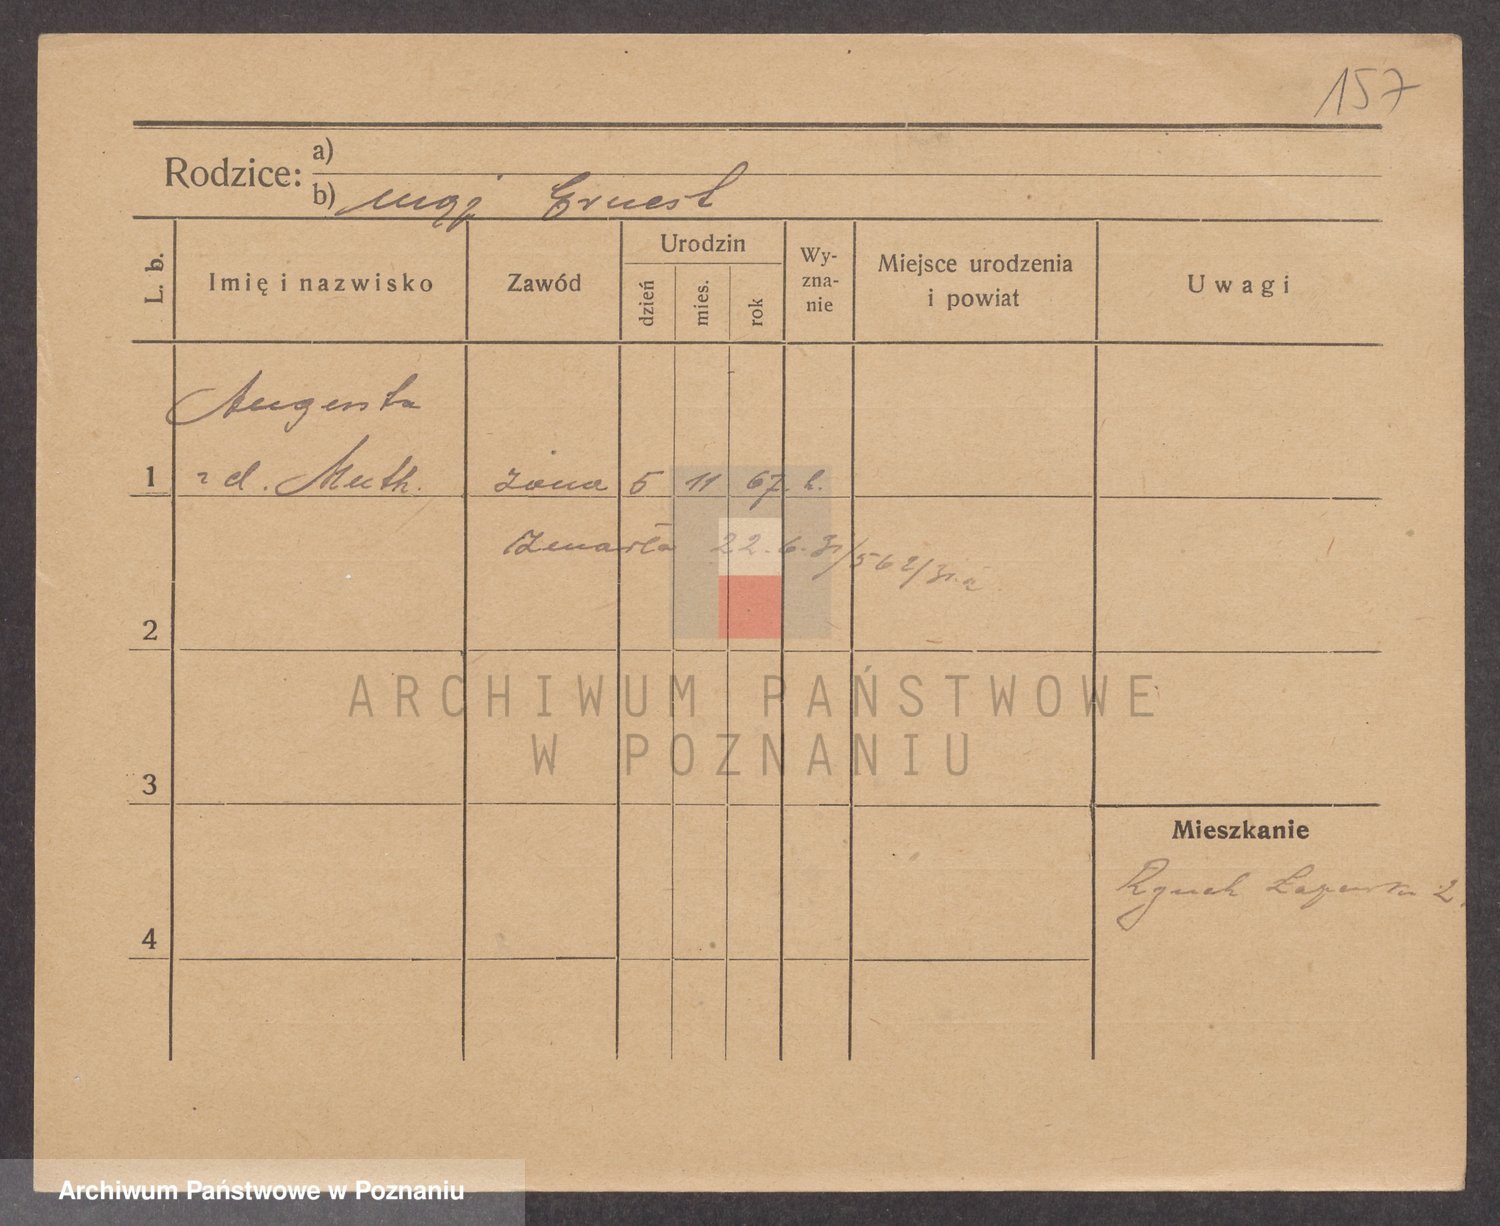 157
Rodzice: a)
b) mąż Ernest
L. b. Imię i nazwisko Zawód Urodzin dzień mies. rok Wy-zna-nie Miejsce urodzenia i powiat Uwagi
Augusta
1 z d. Muth. żona 5 11 67. k.
Zmarła 22. 6. 31/562/31.a
2
ARCHIWUM PAŃSTWOWE
W POZNANIU
3
Mieszkanie
Rynek Łazarski 2.
4
Archiwum Państwowe w Poznaniu